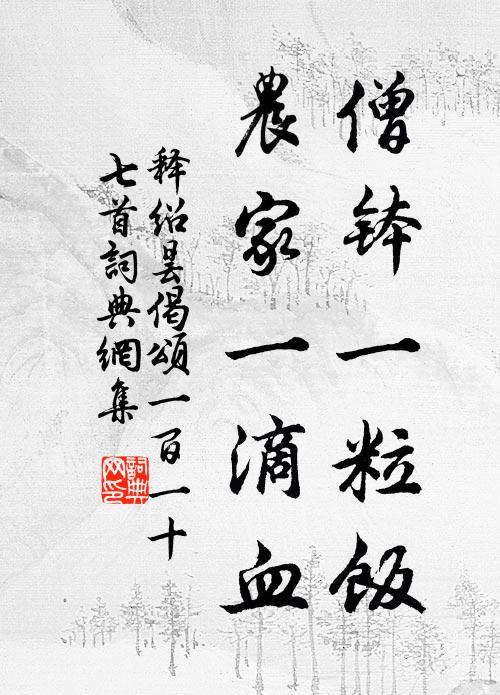 僧钵一粒飯
農家一滴血
释绍昙偈頌一百一十
七首詞典網集
詞典
网印